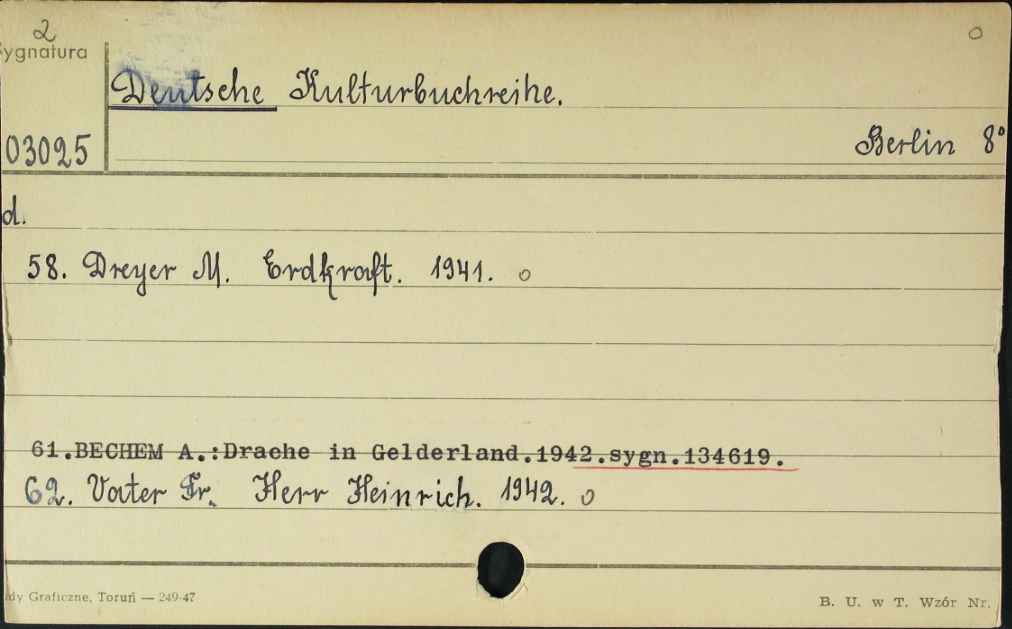 2
ygnatura
o
Deutsche Kulturbuchreihe.
03025
Berlin 8°
d.
58. Dreyer M. Erdkraft. 1941. o
61.BECHEM A.:Drache in Gelderland.1942.sygn.134619.
62. Vater Fr. Herr Heinrich. 1942. o
dy Graficzne, Toruń — 249-47
B. U. w T. Wzór Nr.